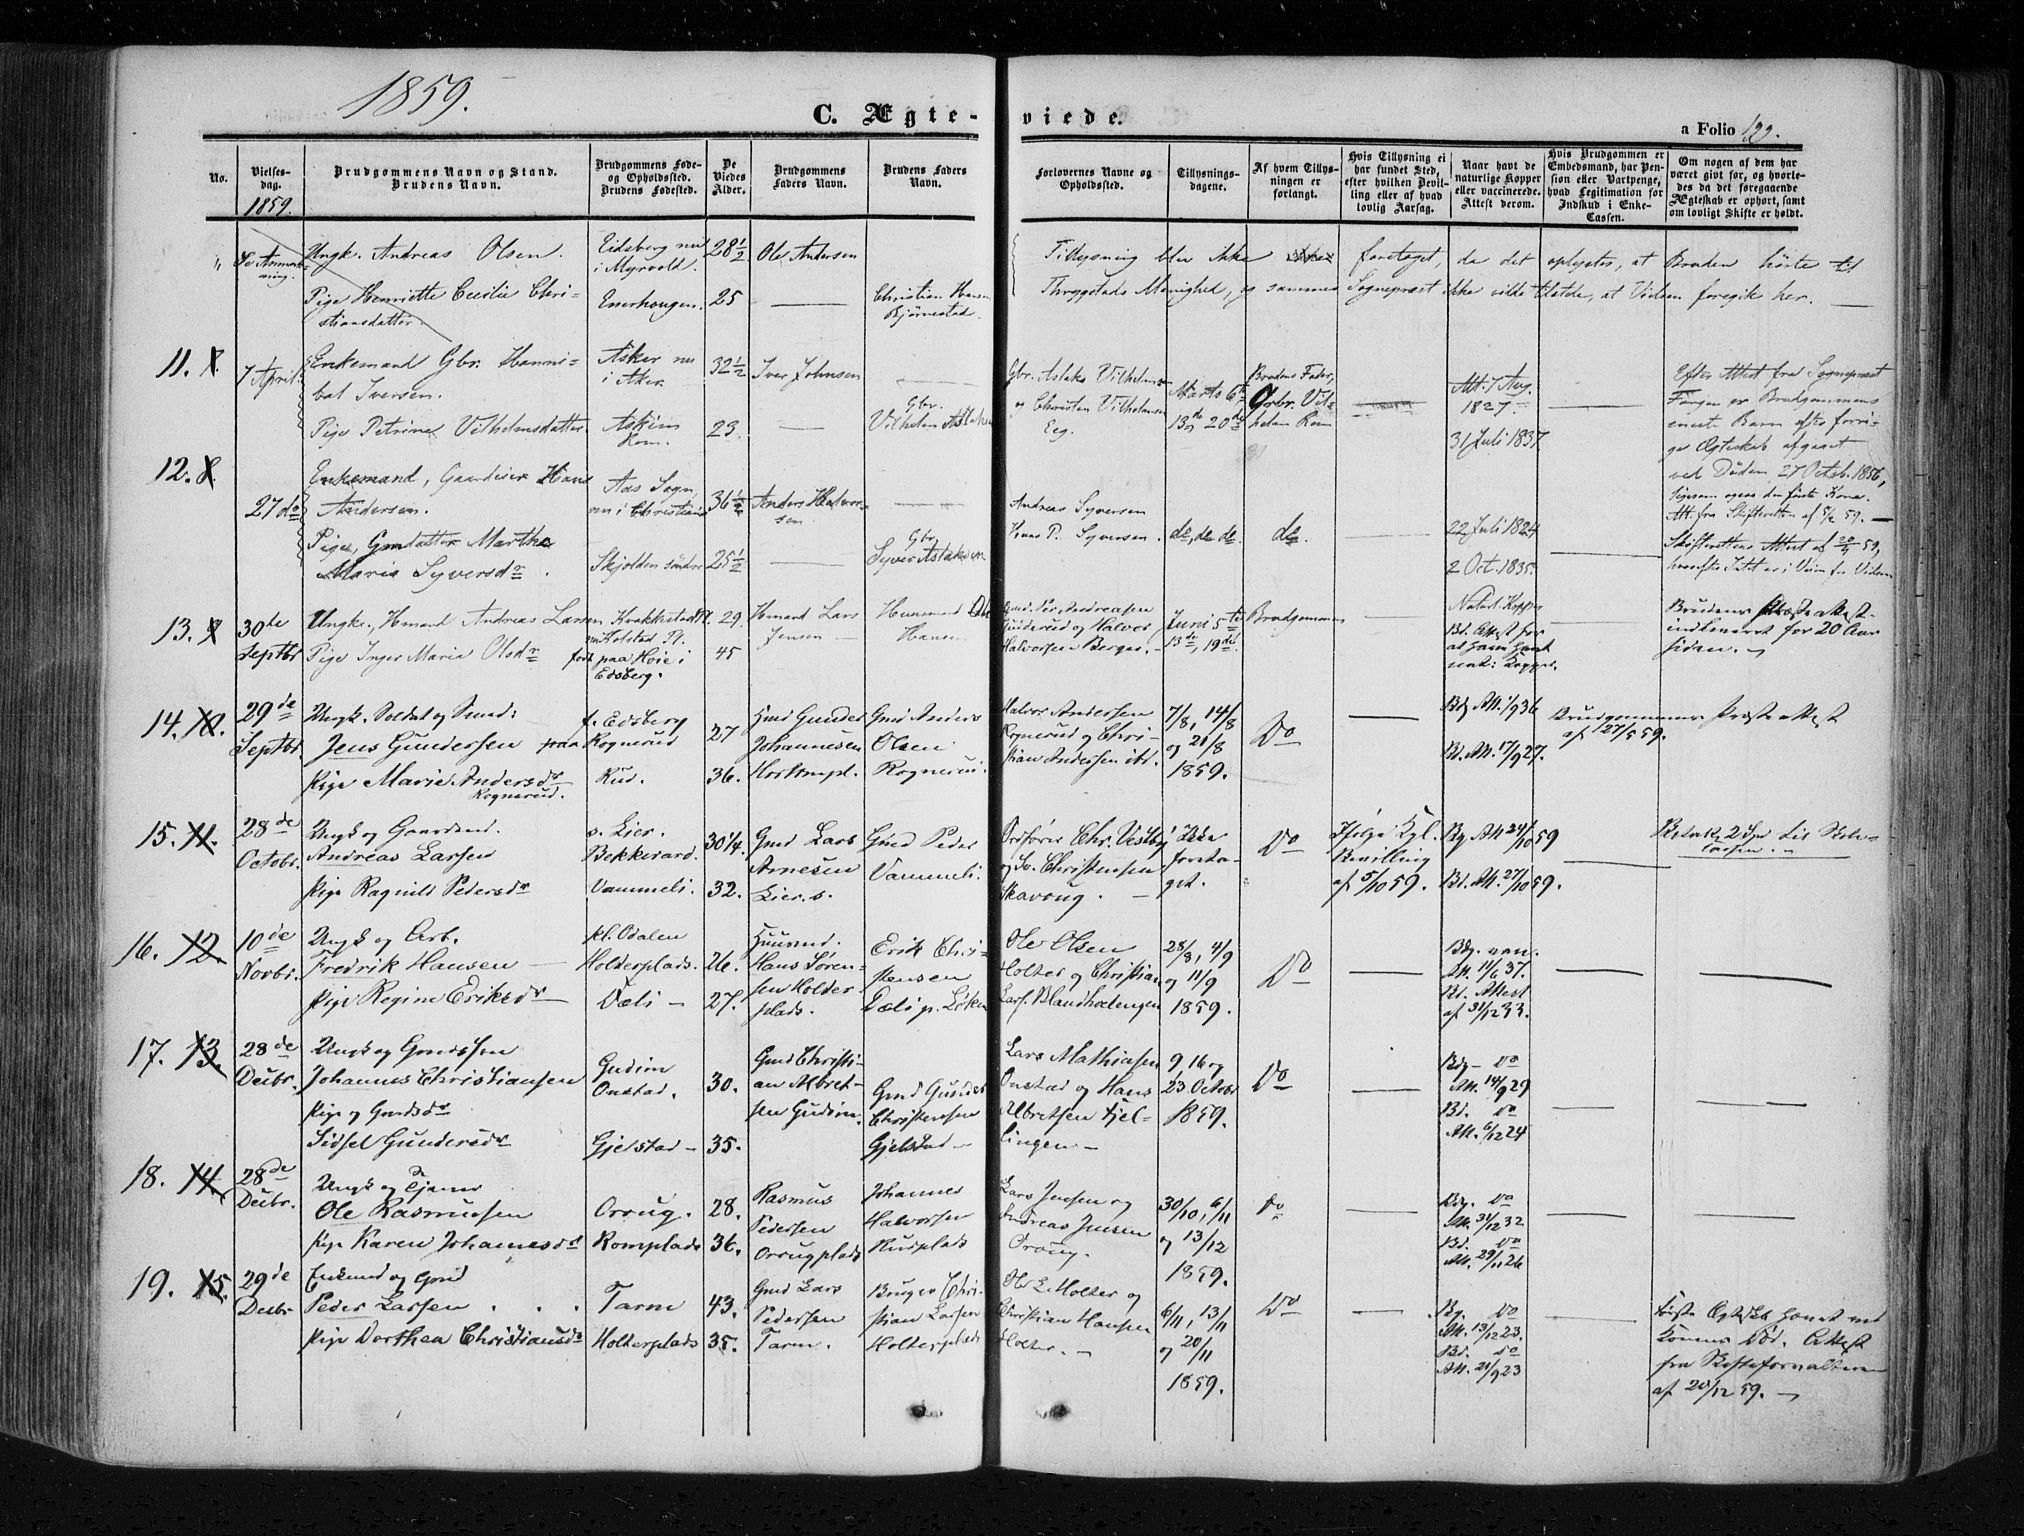 1859.
C. Ægte-
viede.
a Folio 122.
No.
Vielses-
dag.
1859.
Brudgommens Navn og Stand.
Brudens Navn.
Brudgommens Føde-
og Opholdssted.
Brudens Fødested.
De
Viedes
Alder.
Brudgommens
Faders Navn.
Brudens Faders
Navn.
Forlovernes Navne og
Opholdssted.
Tillysnings-
dagene.
Af hvem Tillys-
ningen er
forlangt.
Hvis Tillysning ei
har fundet Sted,
efter hvilken Bevil-
ling eller af hvad
lovlig Aarsag.
Naar havt de
naturlige Kopper
eller vaccinerede.
Attest derom.
Hvis Brudgommen er
Embedsmand, har Pen-
sion eller Vartpenge,
hvad Legitimation for
Indskud i Enke-
Cassen.
Om nogen af dem har
været gift før, og hvorle-
des da det foregaaende
Ægteskab er ophørt, samt
om lovligt Skifte er holdt.
Se Anmærk-
ning.
Ungk. Andreas Olsen.
Pige Henriette Cecilie Chri-
stiansdatter.
Eidsberg nu
i Myrvold.
Enerhougen.
28 1/2
25
Ole Andersen
Christian Hansen
Bjørnestad
Tillysning blev ikke foretaget, da det oplystes, at Bruden hørte til
Thrygstads Menighed, og sammes Sognepræst ikke vilde tilstede, at Vielsen foregik her.
11.
7 April.
Enkemand Gbr. Hanni-
bal Iversen.
Pige Petrine Vilhelmsdatter
Asker nu
i Aker
Askim
Rom.
32 1/2
23.
Iver Johnsen
Gbr.
Vilhelm Aslaksen
Gbr. Aslak Vilhelmsen
og Christen Vilhelmsen
Eeg.
Marts 6te
13de 20de
Brudens Fader,
Gbr. Vil-
helm Rom
Att. 7 Aug.
1827.
31 Juli 1837
Efter Attest fra Sognepræst
er Brudgommens
eneste Barn efter forri-
ge Ægteskab afgaaet
ved Døden 27 Octob. 1856,
ligesom ogsaa den første Kone.
Att. fra Skifteretten af 5/2 59.
12. 8.
27 do
Enkemand, Gaardeier Hans
Andersen.
Pige, Gmdatter Marthe
Maria Syversdr.
Aas Sogn,
nu i Christiania
Skjolden søndre
36 1/2
25 1/2
Anders Halvor-
sen
Gbr.
Syver Aslaksen
Andreas Syversen
Hans P. Syversen.
do, do do.
do.
22 Juli 1824
2 Oct. 1835.
Skifterettens Attest af 59,
13. 9
30de
Septbr
Ungk., Hmand Andreas Larsen
Pige Inger Maria Olsdr
Krakkestad Pl.
nu Holstad Pl.
født paa Hoie i
Edsberg.
29.
45
Hmand Lars
Jensen
Huusmand Ole
Hansen
Gmd. Per Andreasen
Gudderud og Halvor
Halvorsen Berger.
Juni 5te
13de, 19de.
Brudgommen
Naturl. Kopper
Bd. Attest for
at have havt
nat. Kopper.
Brudens Præsteattest
indleveret for 20 Aar
siden.
14. 10.
29de
Septbr.
Ungk. Soldat og Smed:
Jens Gundersen
Pige Marie Andersdr
Rognerud.
f. Edsberg
paa Rognerud
Rud.
27
36.
Hmd Gunder
Johannesen
Gmd Anders
Olsen
Rognerud.
Halvor Andersen
Rognerud og Chri-
stian Andersen ibd.
7/8, 14/8
og 21/8
1859.
Do
Bd. Att. 17/9 27.
Brudgommens Præsteattest
af 27/5 59.
15. 11.
28de
Octobr.
Ungk og Gaardmd.
Andreas Larsen
Pige Ragnild Pedersdr
s. Lier.
Bekkevard.
Vammeli.
30 1/4.
32.
Gmd Lars
Arnesen
Lier. s.
Gmd Peder
Vammeli.
Ordfører Chr. Vestby
og Sv. Christensen
Skavoug.
Ikke
foreta-
get.
Do
Ifølge Kgl.
Bevilling
af 5/10 59.
Bg Att 24/10 59
Bd. Att. 27/10 59.
16. 12.
10de
Novbr.
Ungk og Arb.
Fredrik Hansen
Pige Regine Eriksdr
kl. Odalen
Holderplads.
Dæli
26.
27.
Huusmd.
Hans Søren-
sen Holder-
plads.
Erik Chri-
stensen
Dæli p. Løken
Ole Olsen
Holter og Christian
Lars. Blandholengen
28/8, 4/9
og 11/9
1859.
Do
Bdg. vac.
Att. 11/6 37.
Bd. Attest
af 31/12 33.
17. 13.
28de
Decbr.
Ungk og Gmdssøn
Johannes Christiansen
Pige og Gmdsdr
Sidsel Gundersdr
Gudim
Onstad.
Gjelstad
30.
35.
Gmd Christi-
an Albret-
sen Gudim.
Gmd Gunder
Christensen
Gjelstad
Lars Mathiasen
Onstad og Hans
Albretsen Fjel-
lingen
9, 16 og
23 October
1859.
Do
Bdg Do
Att. 14/9 29
Bd. Do
Att. 6/12 24
18. 14.
28de
Decbr.
Ungk og Tjener
Ole Rasmusen
Pige Karen Johannesdr
Oroug.
Romplads
28.
36.
Rasmus
Pedersen
Orougplads
Johannes
Halvorsen
Rudplads
Lars Jensen og
Andreas Jensen
Oroug.
30/10, 6/11
og 13/12
1859.
Do
Bdg. Do
Att. 31/12 32
Bd. Do
Att. 29/11 26
19. 15.
29de
Decbr
Enkmd og Gmd
Peder Larsen
Pige Dorthea Christiansdr
Tarm
Holterplads
43.
35.
Gmd Lars
Pedersen
Tarm.
Bruger Chri-
stian Larsen
Holterplads
Ole L. Holter og
Christian Hansen
Holter.
6/11, 13/11
og 20/11
1859.
Do
Bg. Do
Att. 13/12 23.
Bd. Do
Att. 21/9 23
første Ægtesk. hævet ved
Konens Død. Attest
fra Skifteforvalteren
af 20/12 59.